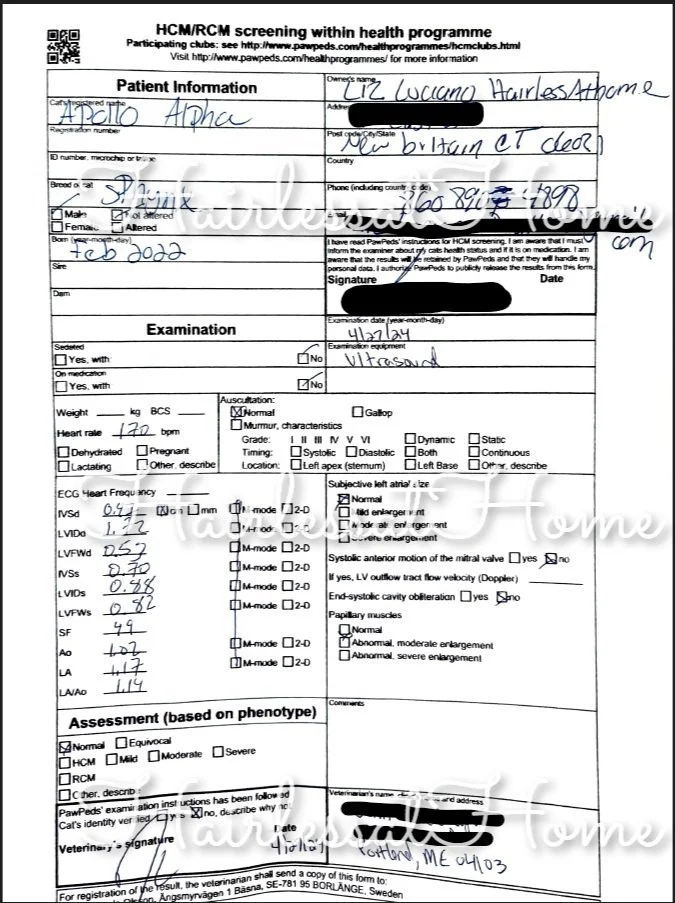 HCM/RCM screening within health programme
Participating clubs: see http://www.pawpeds.com/healthprogrammes/hcmclubs.html
Visit http://www.pawpeds.com/healthprogrammes/ for more information
Patient Information
Cat's registered name
Apollo Alpha
Registration number
ID number, microchip or
Breed of cat
Sphynx
Male Not altered
Female Altered
Born (year-month-day)
Feb 2022
Sire
Dam
Owner's name
Liz Luciano HairlessAthome
Address
Post code/City/State
New britain CT
Country
Phone (including country code)
I have read PawPeds' instructions for HCM screening. I am aware that I must
inform the examiner about my cats health status and if it is on medication. I am
aware that the results will be retained by PawPeds and that they will handle my
personal data. I authorize PawPeds to publicly release the results from this form.
com
Signature Date
Examination
Sedated
Yes, with No
On medication
Yes, with No
Examination date (year-month-day)
4/27/24
Examination equipment
Ultrasound
Weight kg BCS
Heart rate 170 bpm
Dehydrated Pregnant
Lactating Other, describe
Auscultation:
Normal Gallop
Murmur, characteristics
Grade: I II III IV V VI Dynamic Static
Timing: Systolic Diastolic Both Continuous
Location: Left apex (sternum) Left Base Other, describe
ECG Heart Frequency
IVSd cm mm M-mode 2-D
LVIDd M-mode 2-D
LVFWd 0.52 M-mode 2-D
IVSs 0.70 M-mode 2-D
LVIDs 0.88 M-mode 2-D
LVFWs 0.82 M-mode 2-D
SF 49
Ao 1.02 M-mode 2-D
LA 1.17 M-mode 2-D
LA/Ao 1.14
Subjective left atrial size
Normal
Mild enlargement
Moderate enlargement
Severe enlargement
Systolic anterior motion of the mitral valve yes no
If yes, LV outflow tract flow velocity (Doppler)
End-systolic cavity obliteration yes no
Papillary muscles
Normal
Abnormal, moderate enlargement
Abnormal, severe enlargement
Assessment (based on phenotype)
Normal Equivocal
HCM Mild Moderate Severe
RCM
Other, describe
Comments
PawPeds' examination instructions has been followed
Cat's identity verified yes no, describe why not
Veterinary's signature Date
Veterinarian's name and address
Portland, ME 04103
For registration of the result, the veterinarian shall send a copy of this form to:
Olsson, Ängsmyrvägen 1 Bäsna, SE-781 95 BORLÄNGE, Sweden
Hairless at Home
Hairless at Home
Hairless at Home